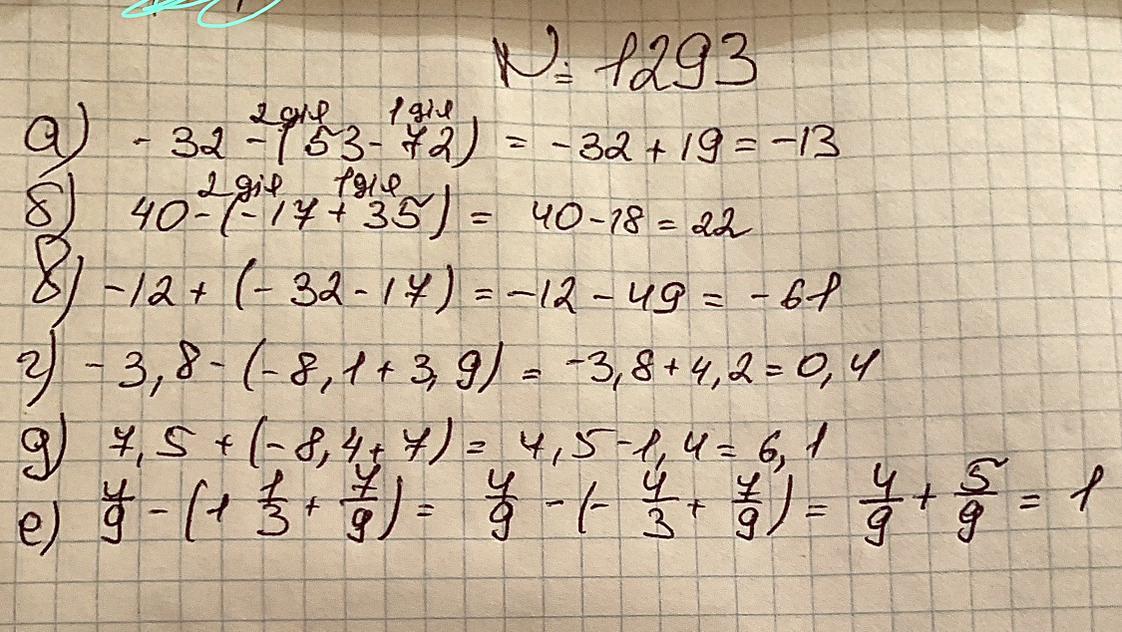 № 1293
а) - 32 - (53 - 72) = -32 + 19 = -13
2 дія 1 дія
б) 40 - (-17 + 35) = 40 - 18 = 22
2 дія 1 дія
в) -12 + (- 32 - 17) = -12 - 49 = -61
г) - 3,8 - (-8,1 + 3,9) = -3,8 + 4,2 = 0,4
д) 7,5 + (-8,4 + 7) = 7,5 - 1,4 = 6,1
е) 4/9 - (1 1/3 + 7/9) = 4/9 - (- 4/3 + 7/9) = 4/9 + 5/9 = 1